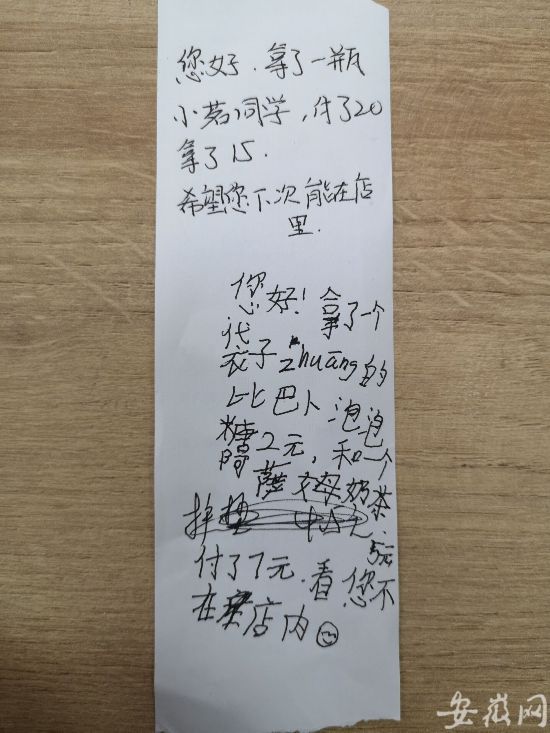 您好.拿了一瓶
小茗同学,付了20
拿了15.
希望您下次能在店
里.
您好!拿了一个
袋子zhuāng的
比巴卜泡泡
糖2元,和一个
萨母奶茶.
5元
付了7元.看您不
在店内
安徽网